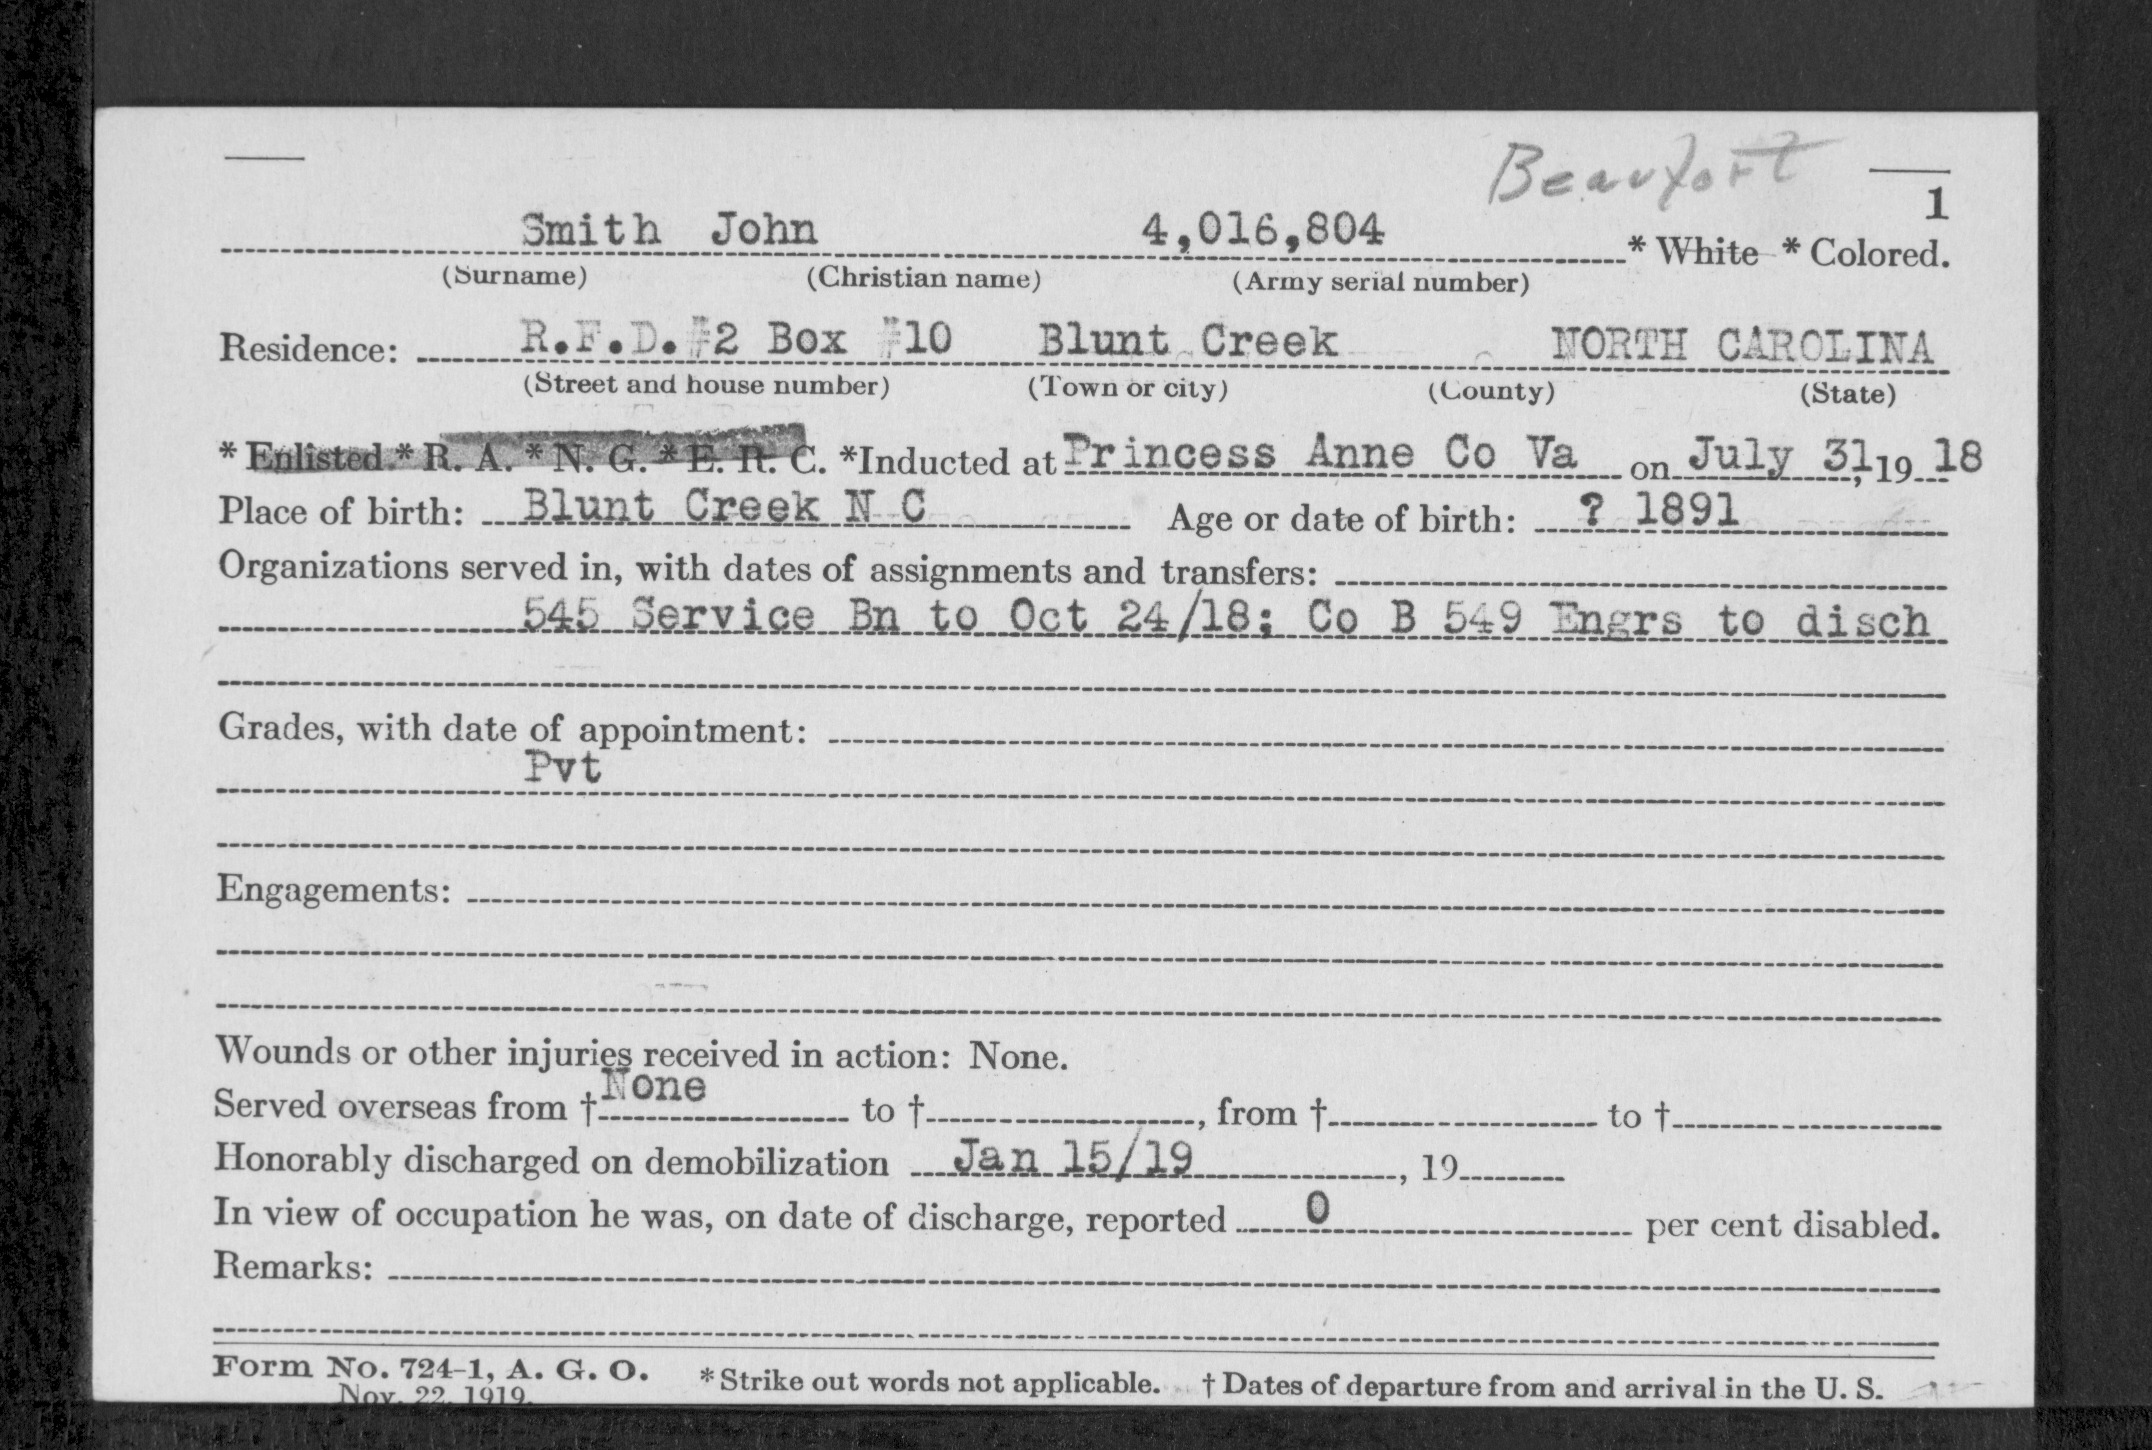 Beaufort
1
Smith John 4,016,804 * White * Colored.
(Surname) (Christian name) (Army serial number)
Residence: R.F.D. #2 Box #10 Blunt Creek NORTH CAROLINA
(Street and house number) (Town or city) (County) (State)
* Enlisted * R. A. * N. G. * E. R. C. *Inducted at Princess Anne Co Va on July 31, 19 18
Place of birth: Blunt Creek N C Age or date of birth: ? 1891
Organizations served in, with dates of assignments and transfers:
545 Service Bn to Oct 24/18; Co B 549 Engrs to disch
Grades, with date of appointment:
Pvt
Engagements:
Wounds or other injuries received in action: None.
Served overseas from † None to †, from † to †
Honorably discharged on demobilization Jan 15/19, 19
In view of occupation he was, on date of discharge, reported 0 per cent disabled.
Remarks:
Form No. 724-1, A. G. O. * Strike out words not applicable. † Dates of departure from and arrival in the U. S.
Nov. 22, 1919.